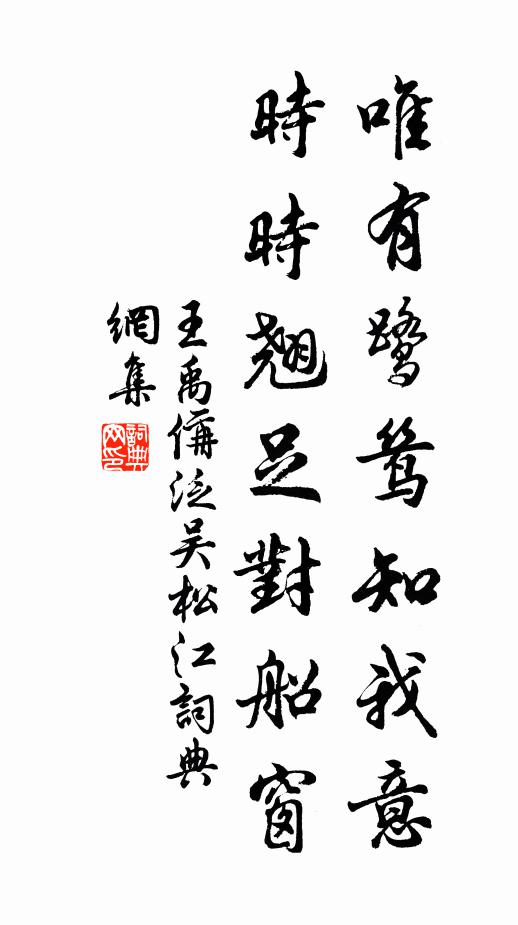 唯有鷺鸶知我意
時時翹足對船窗
王禹偁泛吴松江詞典
網集
詞典
网印